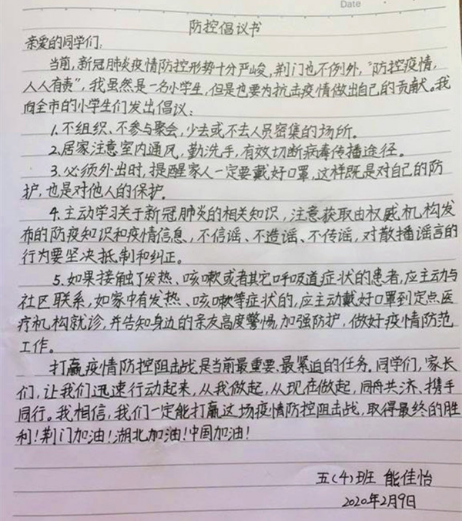 Date
防控倡议书
亲爱的同学们:
当前,新冠肺炎疫情防控形势十分严峻,荆门也不例外,“防控疫情,
人人有责”,我虽然是一名小学生,但是也要为抗击疫情做出自己的贡献。我
向全市的小学生们发出倡议:
1.不组织、不参与聚会,少去或不去人员密集的场所。
2.居家注意室内通风,勤洗手,有效切断病毒传播途径。
3.必须外出时,提醒家人一定要戴好口罩,这样既是对自己的防
护,也是对他人的保护。
4.主动学习关于新冠肺炎的相关知识,注意获取由权威机构发
布的防疫知识和疫情信息,不信谣、不造谣、不传谣,对散播谣言的
行为要坚决抵制和纠正。
5.如果接触了发热、咳嗽或者其它呼吸道症状的患者,应主动与
社区联系,如家中有发热、咳嗽等症状的,应主动戴好口罩到定点医
疗机构就诊,并告知身边的亲友高度警惕,加强防护,做好疫情防范
工作。
打赢疫情防控阻击战是当前最重要、最紧迫的任务。同学们,家长
们,让我们迅速行动起来,从我做起,从现在做起,同舟共济、携手
同行。我相信,我们一定能打赢这场疫情防控阻击战,取得最终的胜
利!荆门加油!湖北加油!中国加油!
五(4)班 能佳怡
2020年2月9日